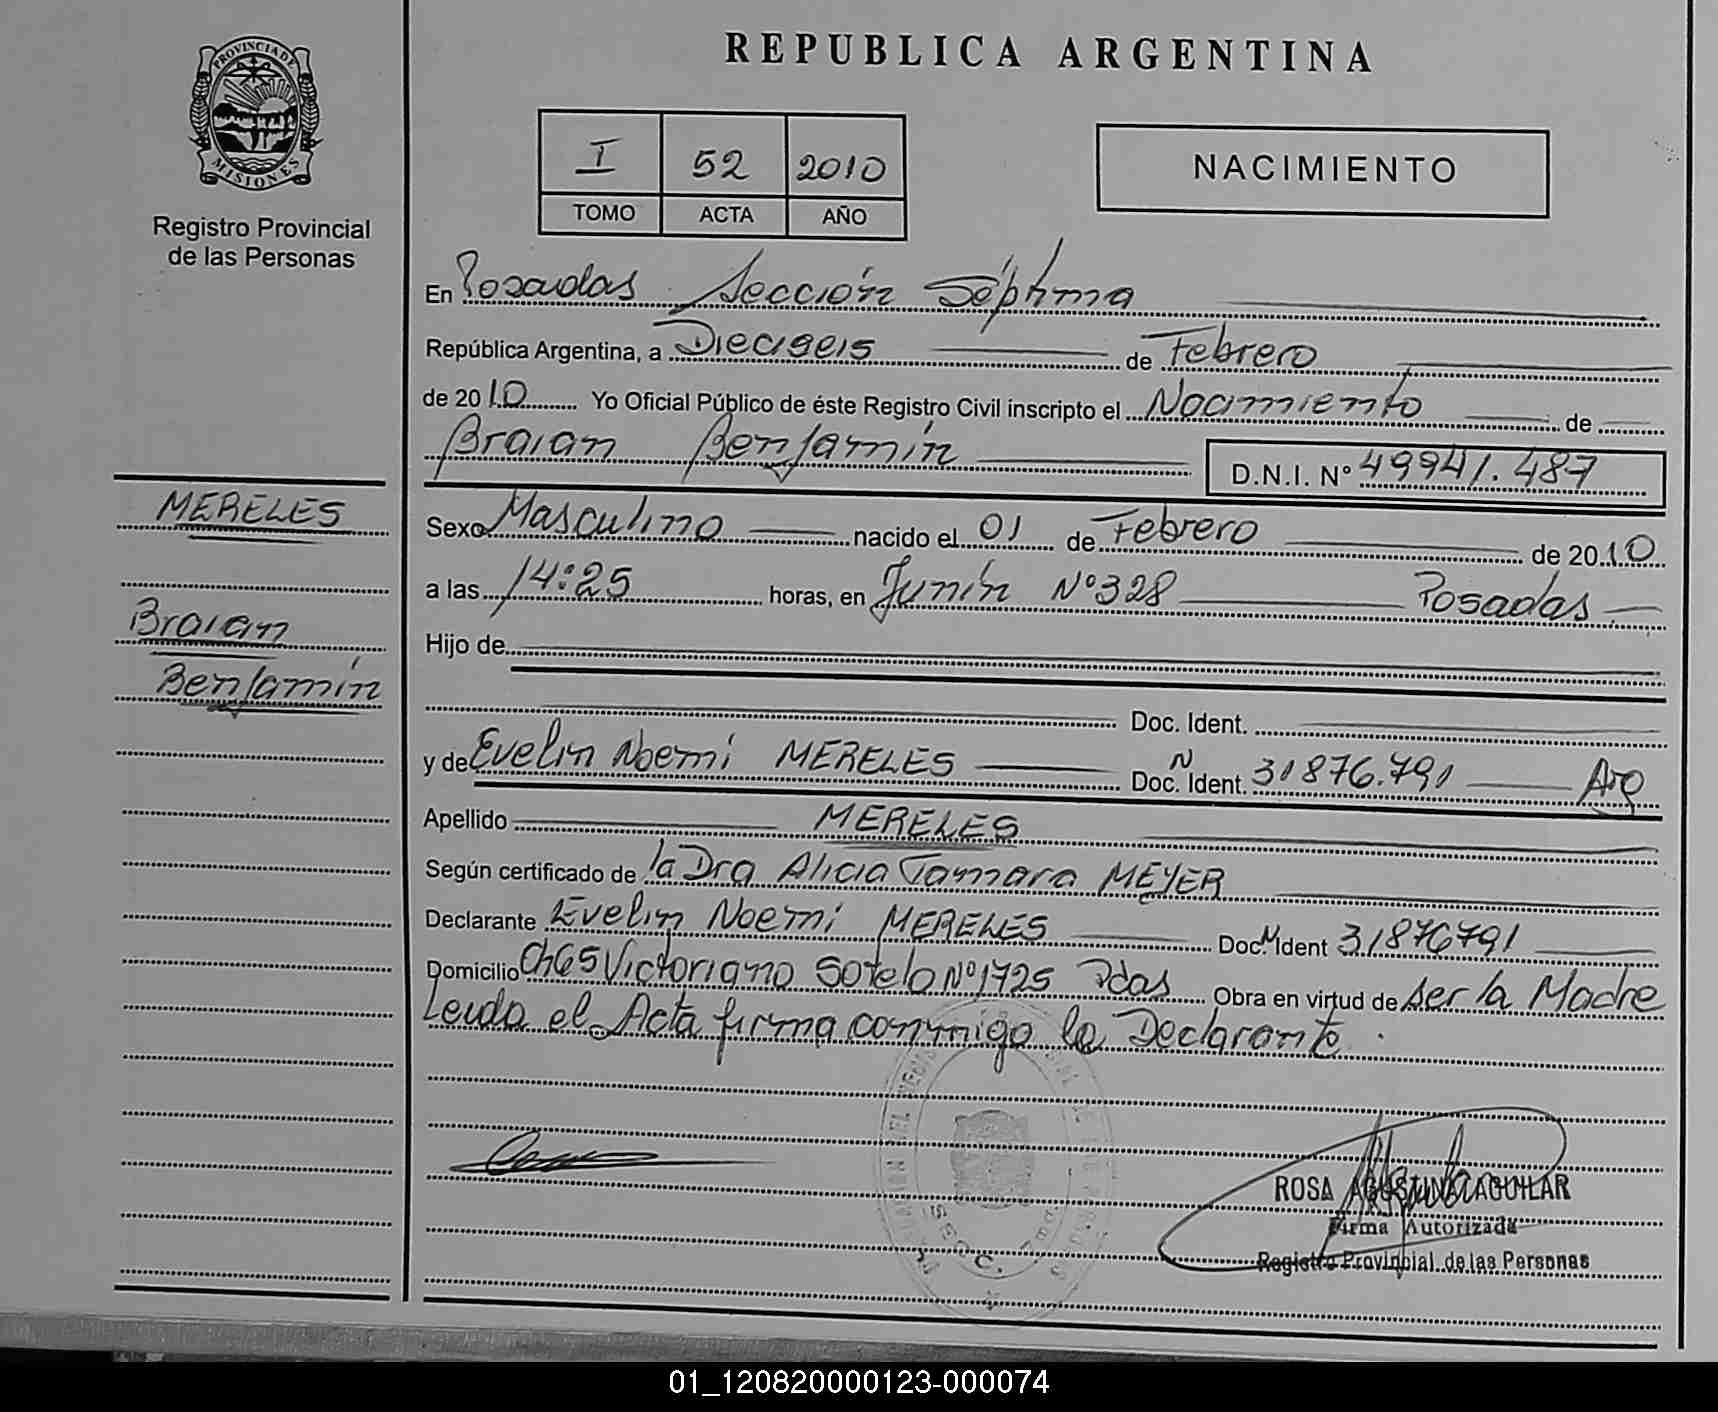 PROVINCIA DE
MISIONES
Registro Provincial
de las Personas
MERELES
Braian
Benjamín
REPUBLICA ARGENTINA
I 52 2010
TOMO ACTA AÑO
NACIMIENTO
En Posadas Sección Séptima
República Argentina, a Dieciseis de Febrero
de 2010 Yo Oficial Público de éste Registro Civil inscripto el Nacimiento de
Braian Benjamín D.N.I. Nº 49941.487
Sexo Masculino nacido el 01 de Febrero de 2010
a las 14:25 horas, en Junín Nº 328 Posadas
Hijo de
Doc. Ident.
y de Evelin Noemi MERELES Doc. N Ident. 31876.791 Arg
Apellido MERELES
Según certificado de la Dra Alicia Tamara MEYER
Declarante Evelin Noemi MERELES Doc. N Ident 31876791
Domicilio Ch65 Victoriano Sotelo Nº 1725 Pdas Obra en virtud de ser la Madre
Leida el Acta firma conmigo la Declarante.
ROSA AGUSTINA AGUILAR
Firma Autorizada
Registro Provincial de las Personas
01_120820000123-000074